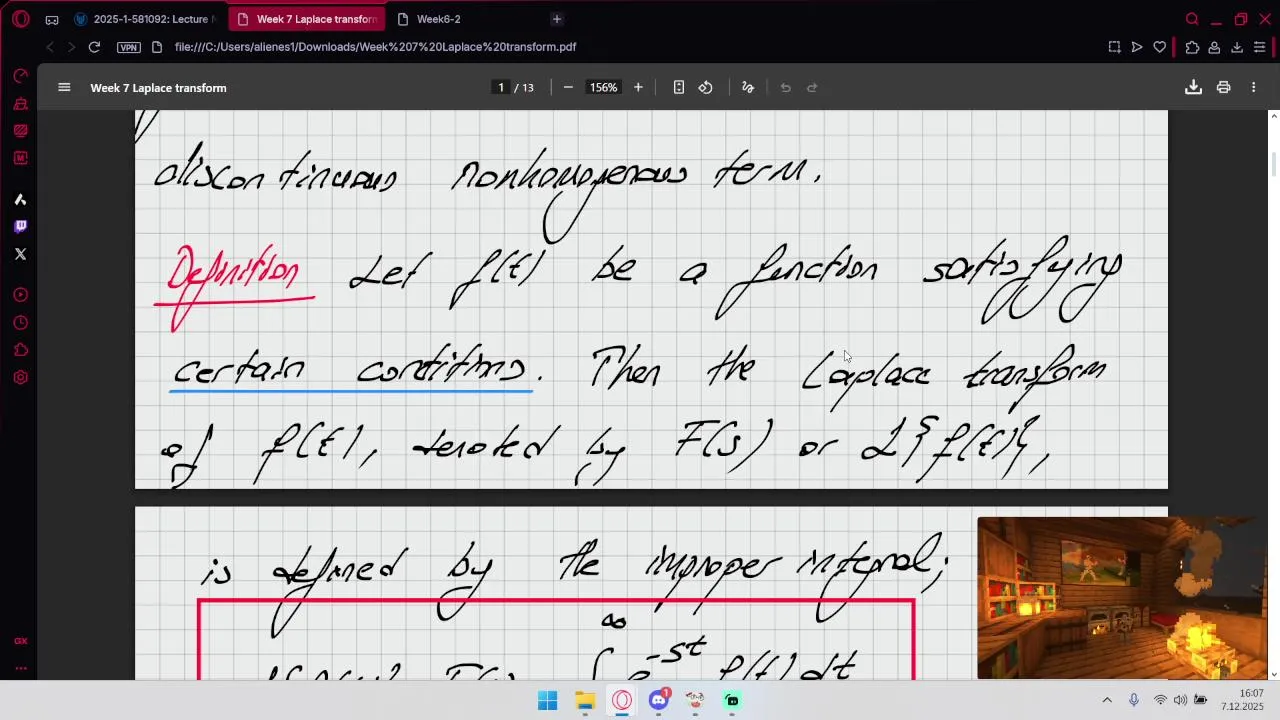 2025-1-581092: Lecture
Week 7 Laplace transform
Week6-2
VPN
file:///C:/Users/alienes1/Downloads/Week%207%20Laplace%20transform.pdf
Week 7 Laplace transform
1 / 13
156%
discontinuous nonhomogenous term.
Definition Let f(t) be a function satisfying
certain conditions. Then the Laplace transform
of f(t), denoted by F(s) or L{f(t)},
is defined by the improper integral;
∞
∫ e^-st f(t) dt
GX
1
16:07
7.12.2025